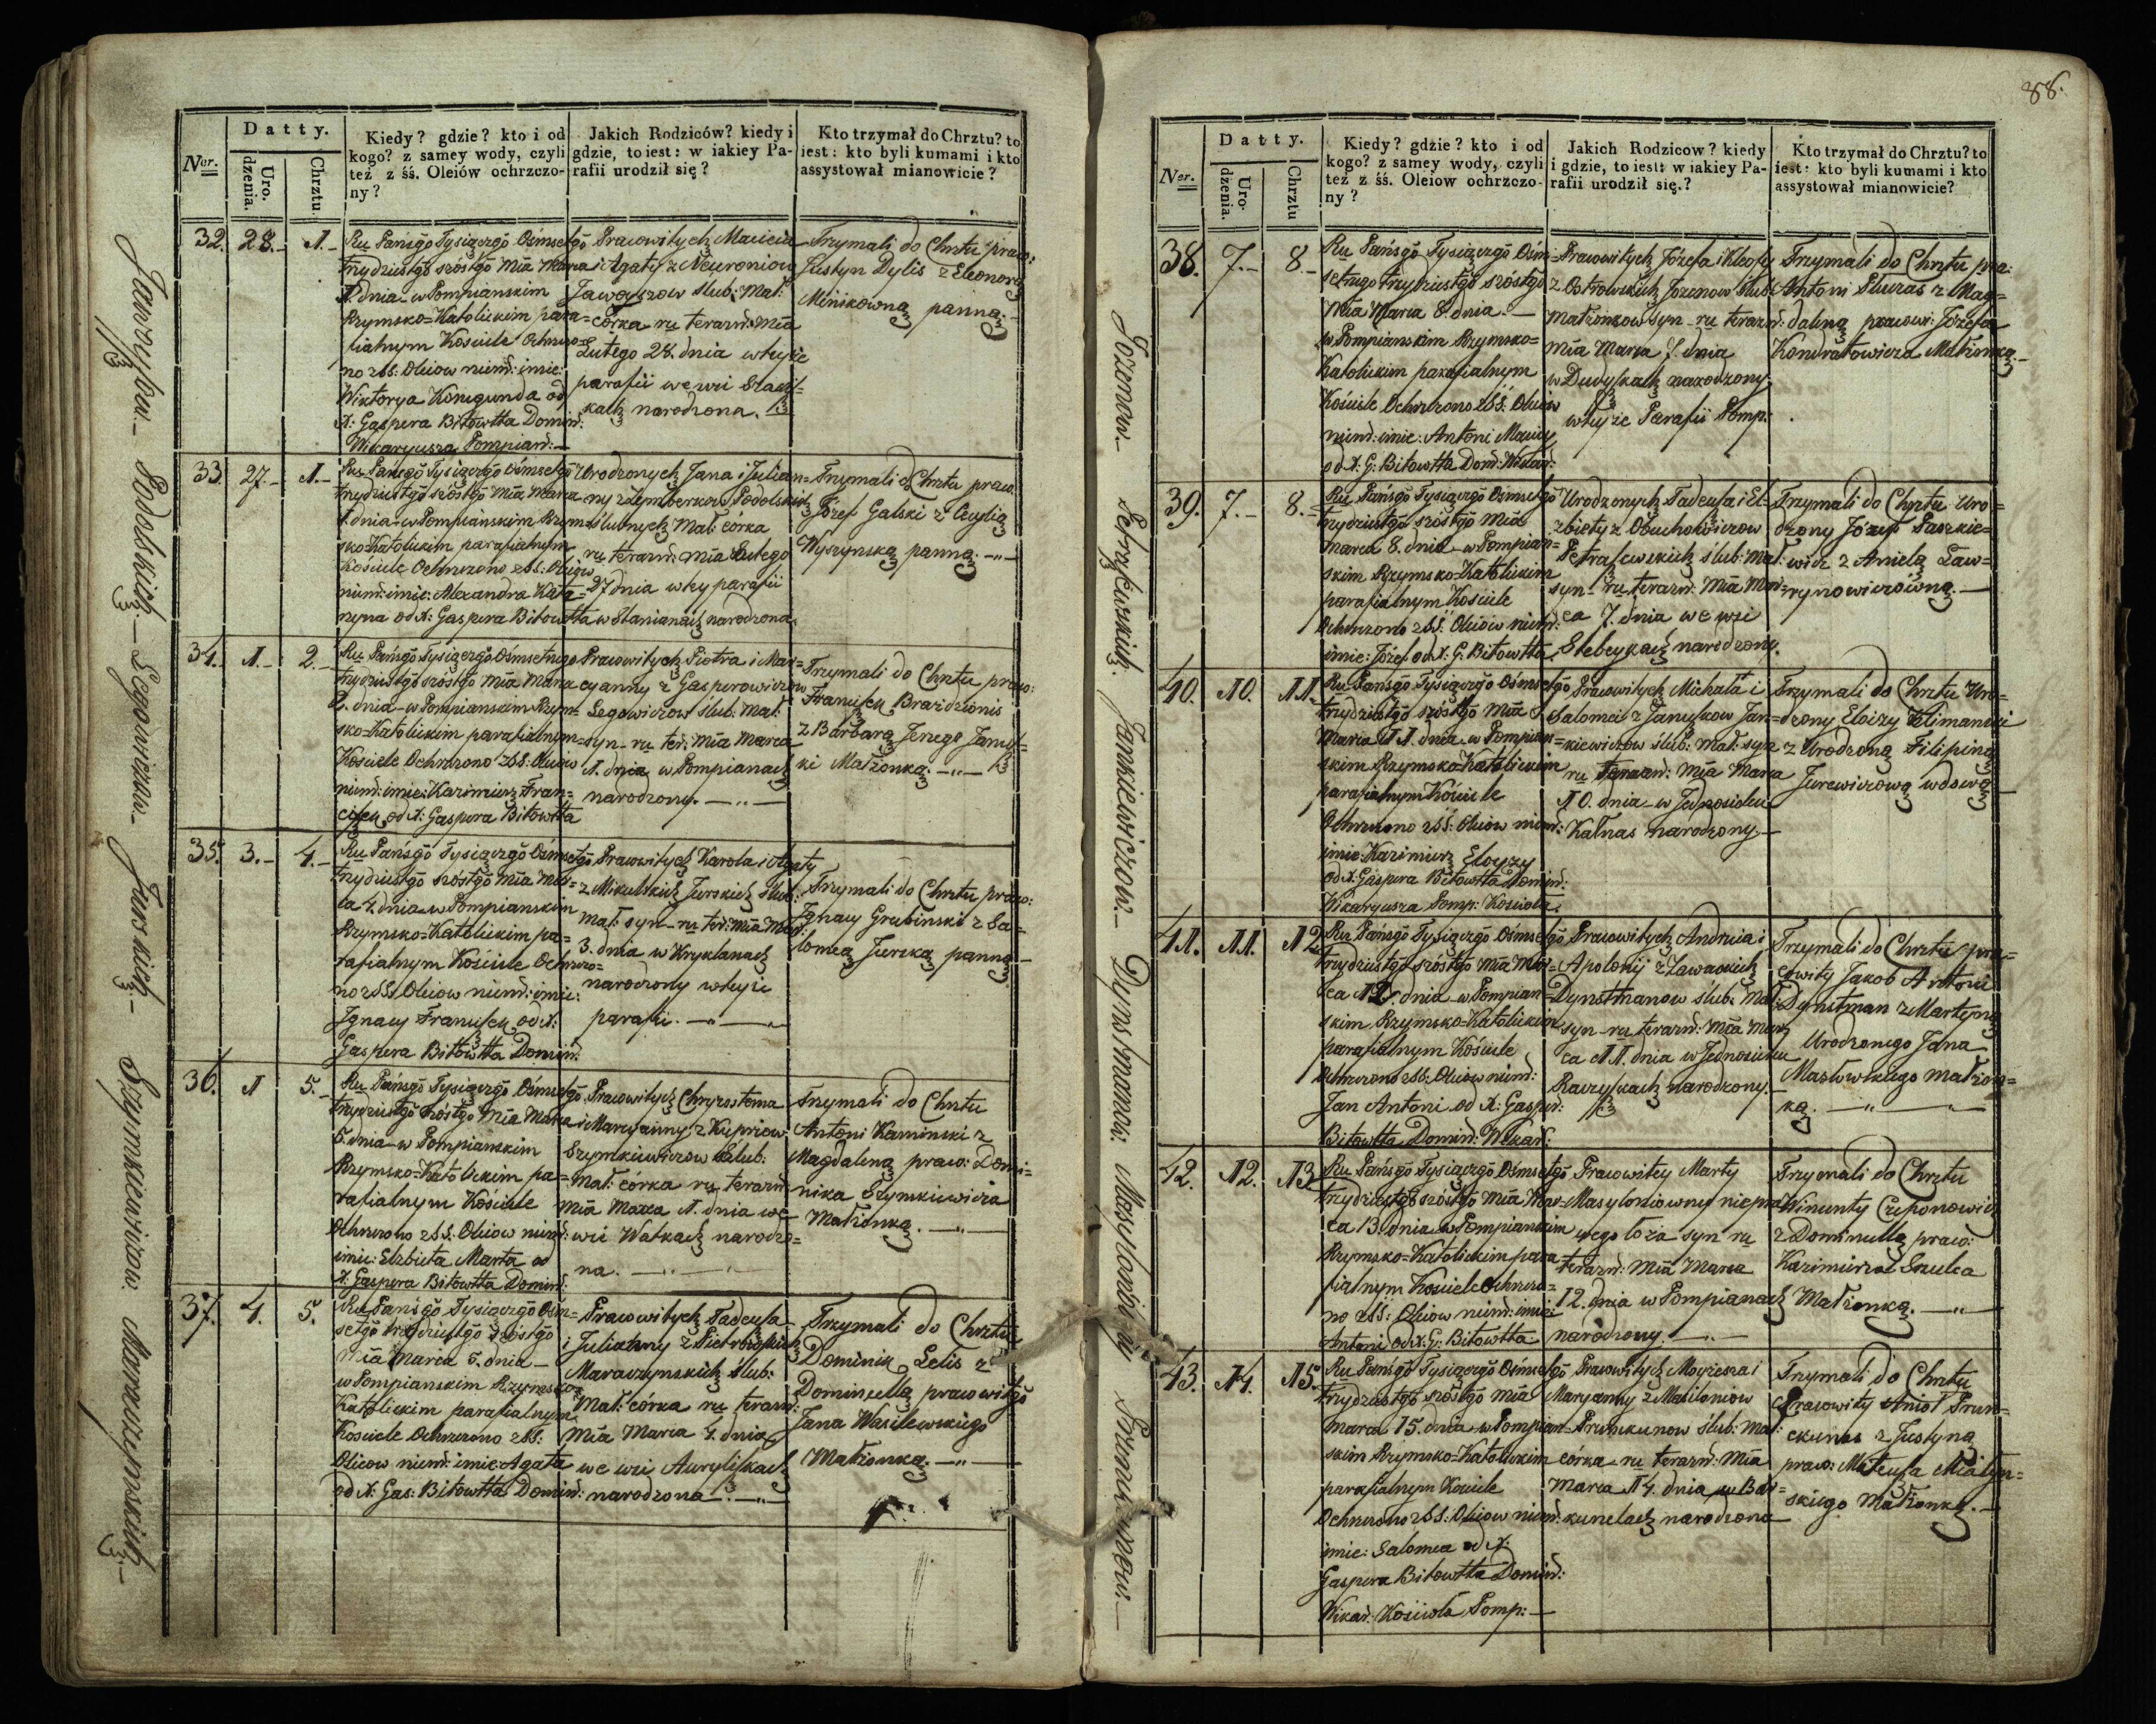 88.
Datty.
Ner.
Uro.
dzenia.
Chrztu
Kiedy? gdzie? kto i od
kogo? z samey wody, czyli
też z śś. Oleiów ochrzczo-
ny?
Jakich Rodziców? kiedy i
gdzie, to iest: w iakiey Pa-
rafii urodził się?
Kto trzymał do Chrztu? to
iest: kto byli kumami i kto
assystował mianowicie?
32. 28.- 1.-
Ru Pańsgō Tysiączgō Ośmsetgō
trzydziestgō szóstgō Mīa Marca
1. dnia w Pompianskim
Rzymsko=Katolickim para=
fialnym Kosciele Ochrzczo=
no z SS: Oleiow niemd: imie:
Wiktorya Konegunda od
X: Gaspera Bitowtta Domin̄:
Wikaryusza Pompian̄:
Pracowitych Macieia
i Agaty z Neuroniow
Jawoyszow ślub: Mał:
córka ru terazn̄: Mīa
Lutego 28. dnia w teyże
parafii we wsi
kach narodzona.
Trzymali do Chrztu praco:
Justyn Dylis z Eleonorą
Minikowną panną.
33. 27.- 1.-
Ru Pańsgō Tysiączgō Ośmsetgō
trzydziestgō szóstgō Mīa Marca
1. dnia w Pompianskim Rzym=
sko-Katolickim parafialnym
Kosciele Ochrzczono z SS: Oleiow
niemd: imie: Alexandra Kata=
rzyna od X: Gaspera Bitowtta
Urodzonych Jana i Julian=
ny z Zymberkow Podolskich
ślubnych Mał: córka
ru terazn̄: Mīa Lutego
27 dnia w tey parafii
w Stanianach narodzona.
Trzymali do Chrztu praco:
Józef Galski z Cecylią
Wyszynską panną.
34. 1.- 2.-
Ru Pańsgō Tysiączgō Ośmsetnego
trzydziestgō szóstgō Mīa Marca
2. dnia w Pompianskim Rzym=
sko-Katolickim parafialnym
Kościele Ochrzczono z SS: Oleiow
niemd: imie: Kazimierz Fran=
ciszek od X: Gaspera Bitowtta
Pracowitych Piotra i Mar=
cyanny z Gasperowiczow
Legowiczow ślub: Mał:
syn ru ter: Mīa Marca
1. dnia w Pompianach
narodzony.
Trzymali do Chrztu praco:
Franciszek Brazdzionis
z Barbarą Jenego Janysz=
ki Małżonką.
35. 3.- 4.-
Ru Pańsgō Tysiączgō Ośmsetgō
trzydziestgō szóstgō Mīa Mar=
ca 4. dnia w Pompianskim
Rzymsko=Katolickim pa=
rafialnym Kościele Ochrzczo=
no z SS. Oleiow niemd: imie:
Ignacy Franciszek od X:
Gaspera Bitowtta Domin̄:
Pracowitych Karola i Agaty
z Mikulskich Jurskich ślub:
mał: syn ru ter: Mīa Mar:
3. dnia w Krykłanach
narodzony w teyże
parafii.
Trzymali do Chrztu praco:
Ignacy Grubinski z Sa=
lomeą Jurską panną.
36. 1 5.-
Ru Pańsgō Tysiączgō Ośmsetgō
trzydziestgō szóstgō Mīa Marca
5. dnia w Pompianskim
Rzymsko=Katolickim pa=
rafialnym Kościele
Ochrzczono z SS. Oleiow niemd:
imie: Elzbieta Marta od
X: Gaspera Bitowtta Domin̄:
Pracowitych Chryzostoma
i Maryanny z Kupriow
Szymkiewiczow ślub:
mał: córka ru terazn̄:
Mīa Marca 1. dnia we
wsi Watkach narodzo=
na.
Trzymali do Chrztu
Antoni Kaminski z
Magdaleną praco: Domi=
nika Szymkiewicza
Małżonką.
37. 4. 5.
Ru Pańsgō Tysiączgō Ośm=
setgō trzydziestgō szóstgō
Mīa Marca 5. dnia
w Pompianskim Rzymsko=
Katolickim parafialnym
Kosciele Ochrzczono z SS:
Oleiow niemd: imie: Agata
od X: Gas: Bitowtta Domin̄:
Pracowitych Tadeusza
i Julianny z Pietrowskich
Marczynskich ślub:
Mał: córka ru terazn̄:
Mīa Marca 4. dnia
we wsi Auryliszkach
narodzona.
Trzymali do Chrztu
Dominik Lelis z
Dominellą pracowitgō
Jana Wasilewskiego
Małżonką.
Jawoyszow.- Podolskich.- Legowiczow.- Jurskich.- Szymkiewiczow. Marczynskich.-
Datty.
Ner.
Uro-
dzenia.
Chrztu
Kiedy? gdzie? kto i od
kogo? z samey wody, czyli
też z śś. Oleiow ochrzczo-
ny?
Jakich Rodzicow? kiedy
i gdzie, to iest: w iakiey Pa-
rafii urodził się.?
Kto trzymał do Chrztu? to
iest: kto byli kumami i kto
assystował mianowicie?
38. 7.- 8.-
Ru Pańsgō Tysiączgō Ośm=
setnego trzydziestgō szóstgō
Mīa Marca 8. dnia
w Pompianskim Rzymsko=
Katolickim parafialnym
Kościele Ochrzczono z SS. Oleiow
niemd: imie: Antoni Maciey
od X: G: Bitowtta Dom: Wikar̄:
Pracowitych Józefa i Kleofy
z Ostrowskich Jozonow ślub:
małżonkow syn ru terazn̄:
Mīa Marca 7. dnia
w Dudyszkach narodzony
w teyże Parafii Pomp:
Trzymali do Chrztu pra:
Antoni Skuras z Mag=
daleną pracowi: Józefa
Kondratowicza Małżonką.
39. 7.- 8.-
Ru Pańsgō Tysiączgō Ośmsetgō
trzydziestgō szóstgō Mīa
Marca 8. dnia w Pompian=
skim Rzymsko-Katolickim
parafialnym Kościele
Ochrzczono z SS. Oleiow niemd:
imie: Józef od X: G: Bitowtta
Urodzonych Tadeusza i El=
zbiety z Obuchowiczow
Petraszewskich ślub: Mał:
syn ru terazn̄: Mīa Mar=
ca 7. dnia we wsi
Stebeykach narodzony.
Trzymali do Chrztu Uro=
dzony Józef Paszkie=
wicz z Anielą Ław=
rynowiczówną.
40. 10. 11.
Ru Pańsgō Tysiącgō Ośmsetgō
trzydziestgō szóstgō Mīa
Marca 11. dnia w Pompian=
skim Rzymsko-Katolickim
parafialnym Kościele
Ochrzczono z SS. Oleiow niemd:
imie Kazimierz Eloyzy
od X: Gaspera Bitowtta Domin̄:
Wikaryusza Pomp: Kościoła.
Pracowitych Michała i
Salomei z Januszkow Jan=
kiewiczow ślub: Mał: syn
ru terazn̄: Mīa Marca
10. dnia w Jednosielcu
Kałnas narodzony
Trzymali do Chrztu Uro=
dzony Eloizy Klimanski
z Urodzoną Filipiną
Jurewiczową wdową
41. 11. 12
Ru Pańsgō Tysiącgō Ośmsetgō
trzydziestgō szóstgō Mīa Mar=
ca 12. dnia w Pompian=
skim Rzymsko-Katolickim
parafialnym Kościele
Ochrzczono z SS: Oleiow niemd:
Jan Antoni od X: Gasper:
Bitowtta Domin̄: Wikar̄:
Pracowitych Andrzeia i
Apolonij z Zawackich
Dynstmanow ślub: Mał:
syn ru terazn̄: Mīa Mar=
ca 11. dnia w Jednosielcu
Raczyszkach narodzony.
Trzymali do Chrztu pra=
cowity Jakob Antoni
Dynstman z Martyną
Urodzonego Jana
Masłowskiego małżon=
ką.
42. 12. 13
Ru Pańsgō Tysiącgō Ośmsetgō
trzydziestgō szóstgō Mīa Mar=
ca 13. dnia w Pompianskim
Rzymsko=Katolickim para=
fialnym Kościele Ochrzczo=
no z SS: Oleiow niemd: imie:
Antoni od X: G: Bitowtta
Pracowitey Marty
Masyloniowny niepra=
wego łoża syn ru
terazn̄: Mīa Marca
12. dnia w Pompianach
narodzony.
Trzymali do Chrztu
Wincenty Czeponowicz
z Dominellą praco:
Kazimierza Szulca
Małżonką.
43. 14. 15.
Ru Pańsgō Tysiącgō Ośmsetgō
trzydziestgō szóstgō Mīa
Marca 15. dnia w Pompian=
skim Rzymsko=Katolickim
parafialnym Kosciele
Ochrzczono z SS: Oleiow niemd:
imie: Salomea od X:
Gaspera Bitowtta Domin̄:
Wikar̄: Kościoła Pomp:
Pracowitych Moyzesza i
Maryanny z Masiloniow
Prunckunow ślub: Mał:
córka ru terazn̄: Mīa
Marca 14. dnia w Bar=
kunelach narodzona
Trzymali do Chrztu
Pracowity Anioł Prun=
ckunas z Justyną
praco: Mateusza Miałyn=
skiego Małżonką.
Jozonow.- Petraszewskich. Jankiewiczow.- Dynstmanow. Masyloniowny Prunckunow.-